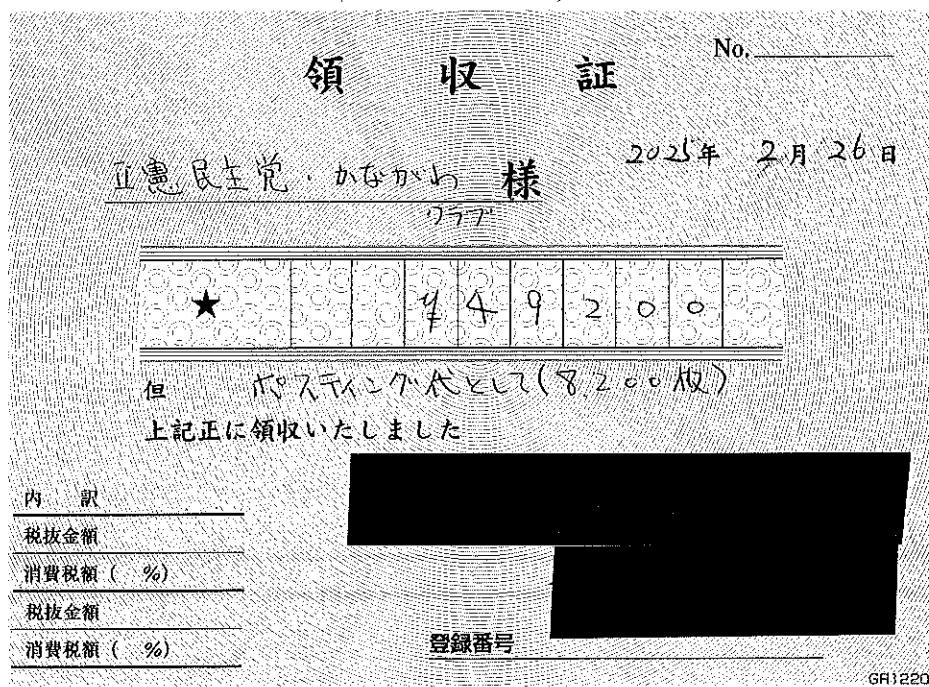 No.
領収証
2025年 2月 26日
立憲民主党・かながわ 様
クラブ
★ ¥49200
但 ポスティング代として(8,200枚)
上記正に領収いたしました
内 訳
税抜金額
消費税額( %)
税抜金額
消費税額( %)
登録番号
GR1220